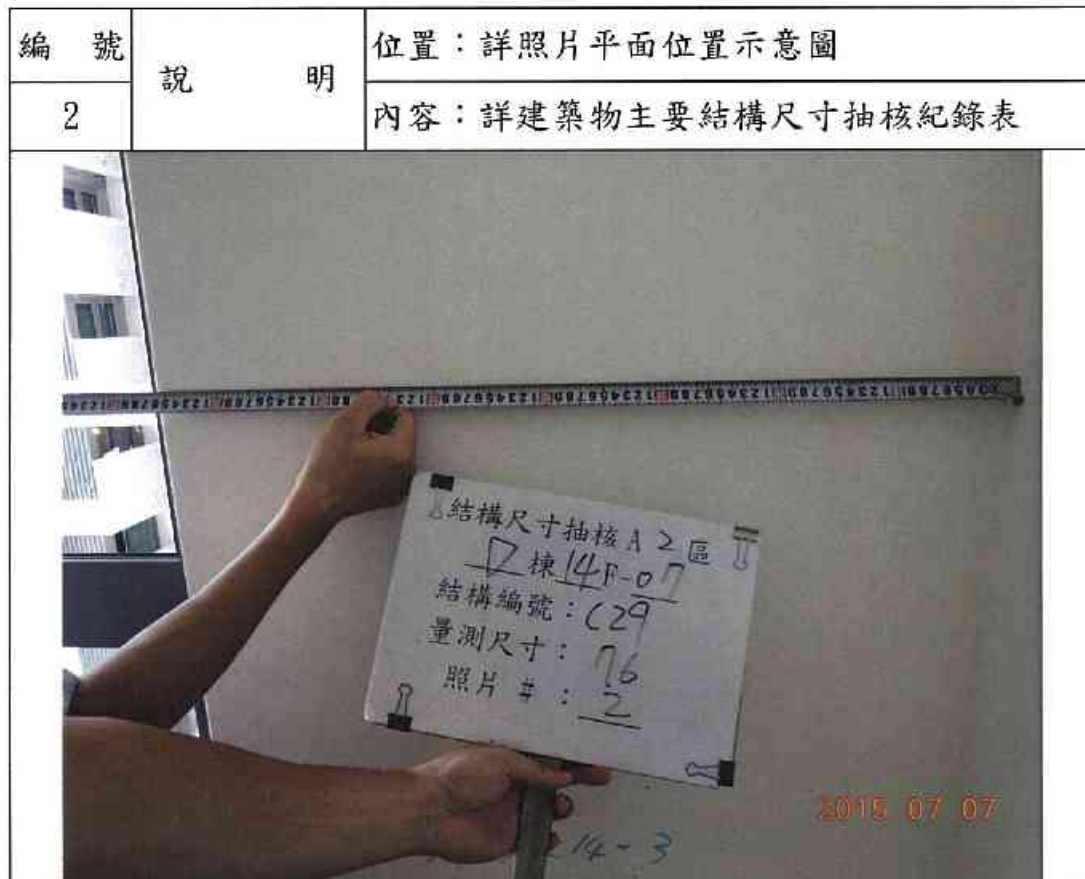 編 號
說 明
位置：詳照片平面位置示意圖
2
內容：詳建築物主要結構尺寸抽核紀錄表
結構尺寸抽核A 2 區
D 棟 14F-07
結構編號：C29
量測尺寸：76
照片 #：2
2015 07 07
14-3